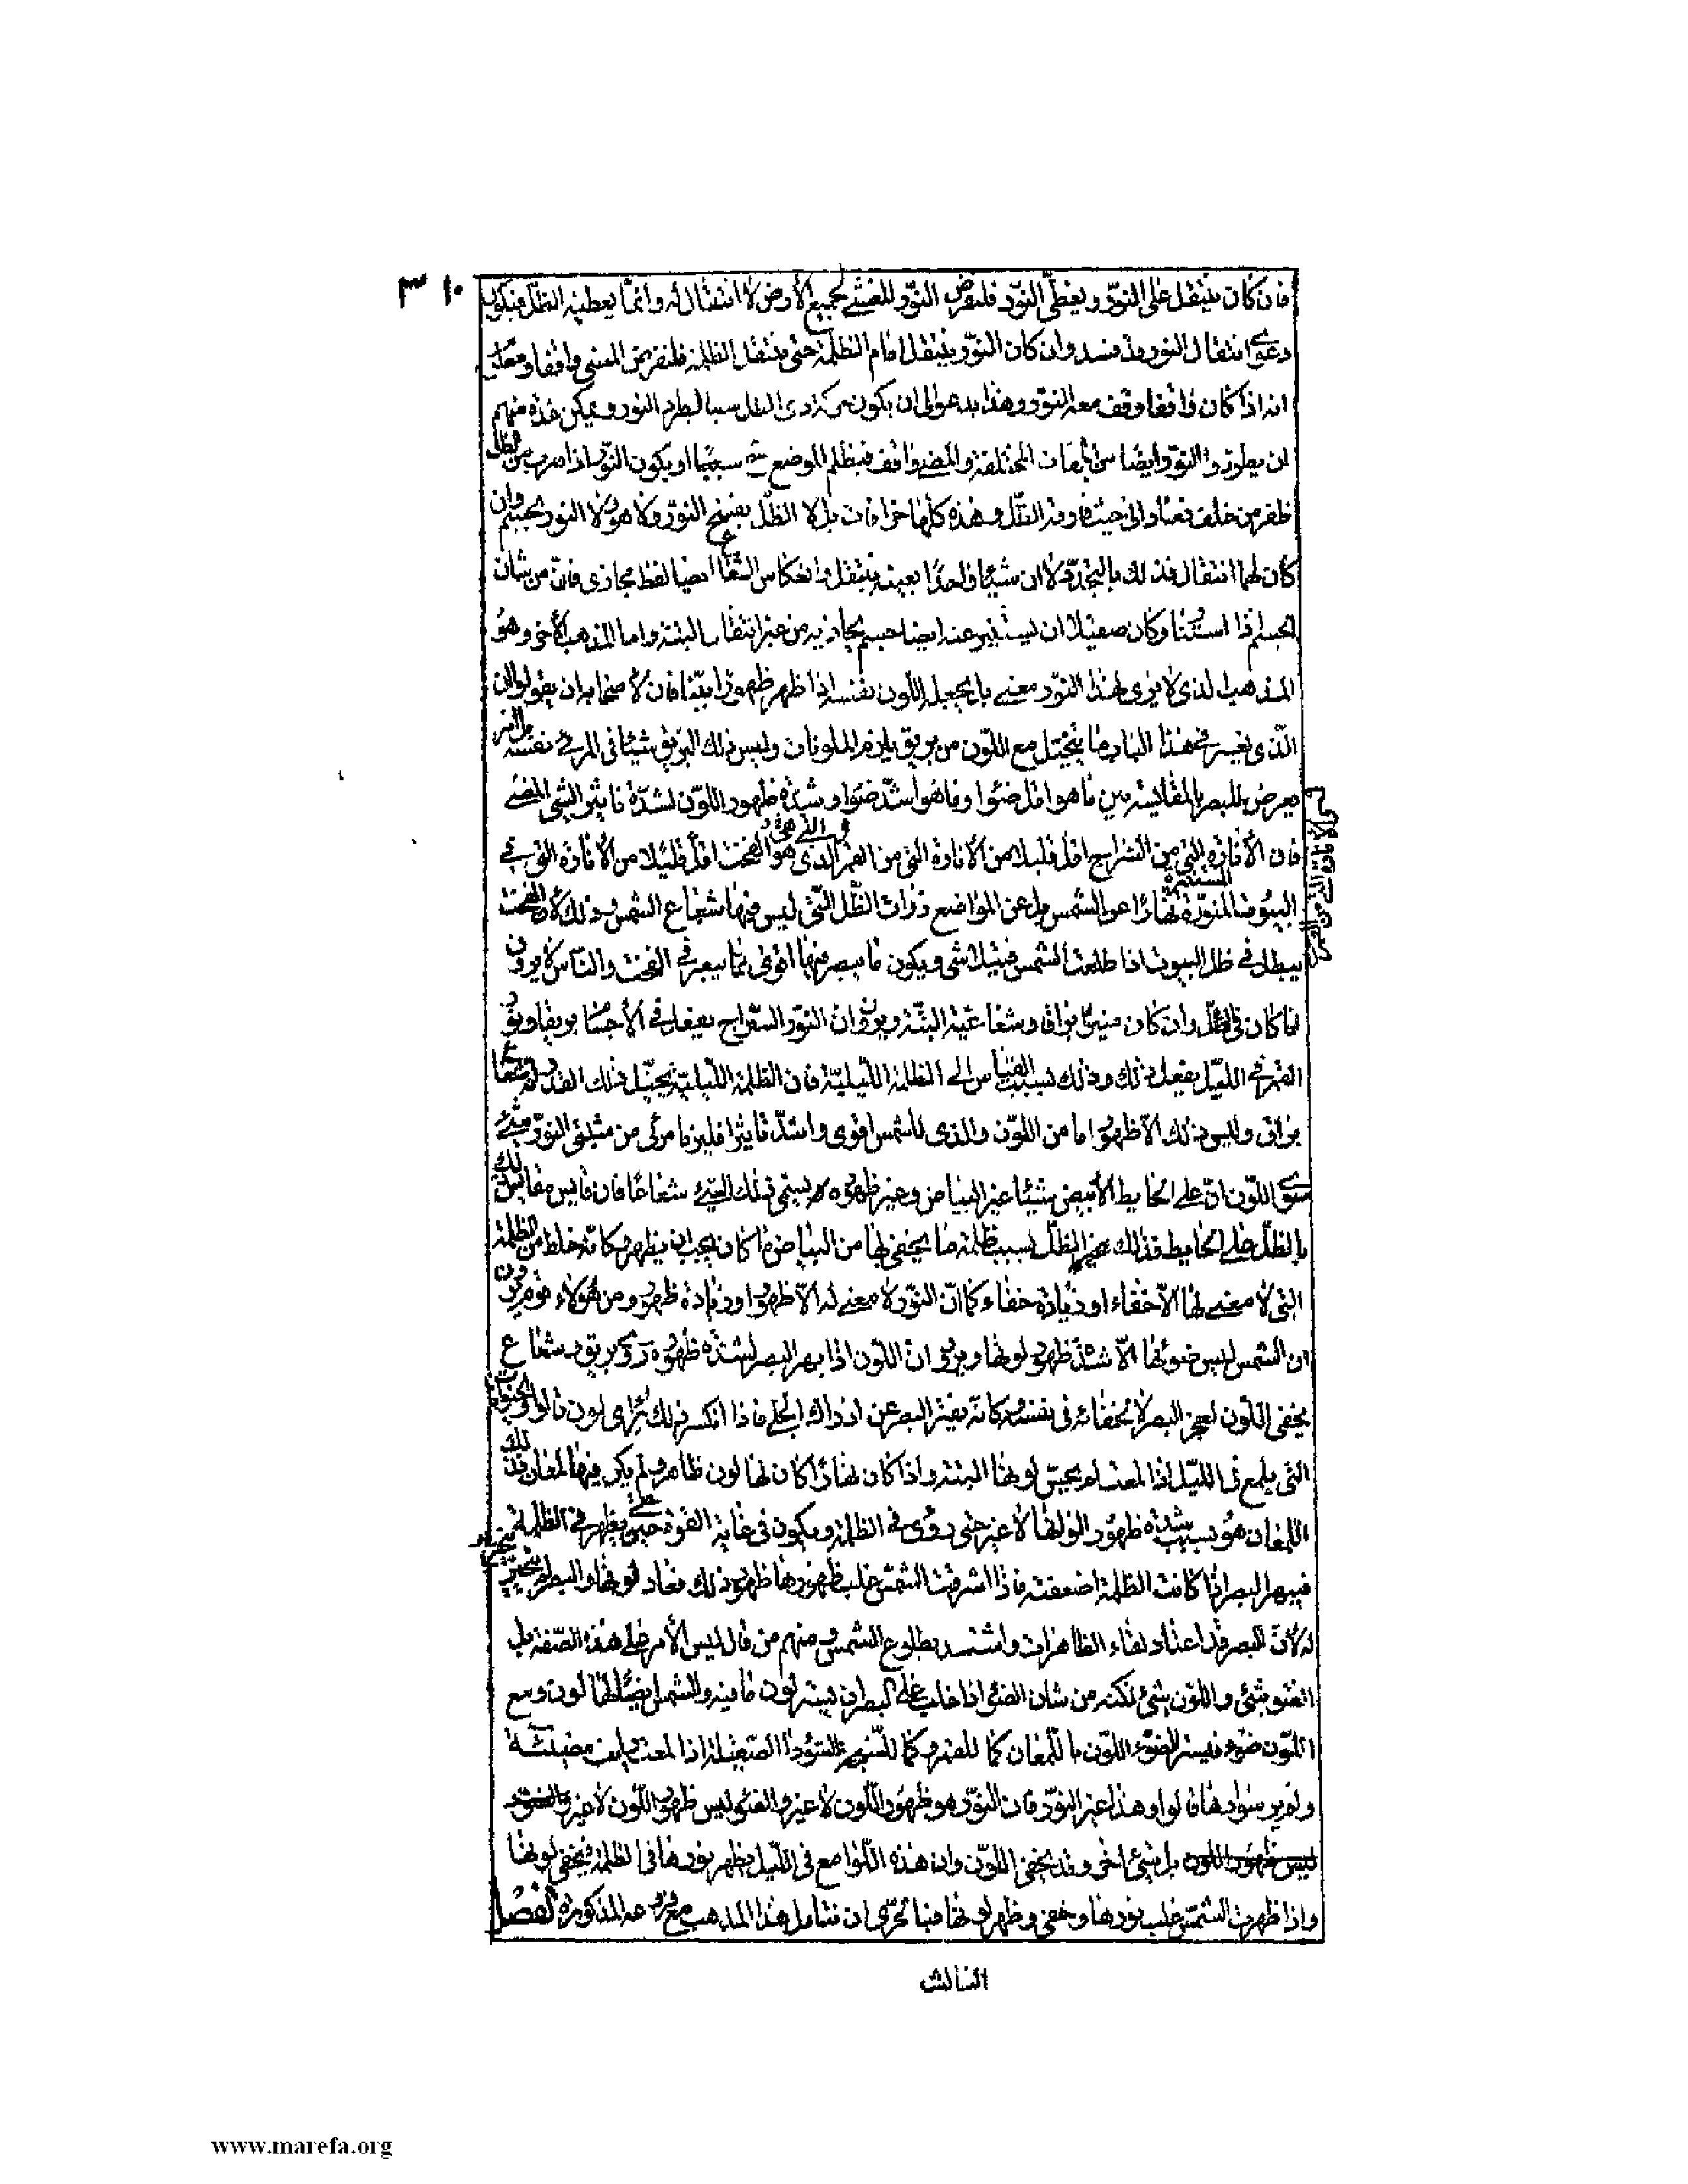 ٣١٠
فان كان ينتقل على النور ويغطى النور فلنفرض النور المغشي لجميع الأرض لا انتقال له وانما يغطيه الظل فيكون
دعوى انتقال النور قد فسد وان كان النور ينتقل امام الظلمة حتى ينتقل الظلمة فلنفرض المضى واقفا ومعلوم
انه اذا كان واقفا وقف معه النور وهذا يدعو الى ان يكون حركة ذى الظل سببا لطرد النور ويمكن عنده منهم
ان يطرد النور ايضا من الجهات المختلفة والمضي واقف فيظلم الموضع او يكون النور اذا هرب من الظل
ظفر من خلف فعاد الى حيث فارقه الظل وهذه كلها خرافات بل لا الظل يفسخ النور ولا هو ولا النور بجسم وان
كان لهما انتقال فذلك بالتجدد لا ان شيئا واحدا بعينه ينتقل وانعكاس الشعاع ايضا لفظ مجازى فان من شأن
الجسم اذا استنار وكان صقيلا ان يستنير عنه ايضا جسم يحاذيه من غير انتقال البتة واما المذهب الأخر وهو
المذهب الذى لا يرى لهذا النور معنى بل يجعل اللون نفسه اذا ظهر ظهورا بيّنا فان لأصحابه ان يقولوا ان
الذى يغير فى هذا الباب ما يتخيل مع اللون من بريق يلزم الملونات وليس ذلك البريق شيئا فى المرئى نفسه بل امر
يعرض للبصر بالمقايسة بين ما هو اقل ضوءا وما هو اشد ضوءا وشدة ظهور اللون لشدة تاثير الشئ المضئ
فان الأنارة التى من السراج اقل قليلا من الأنارة التى من القمر الذى هو الفخت اقل قليلا من الأنارة التى فى
البيوت المنورة نهارا عن الشمس بل عن المواضع ذوات الظل التى ليس فيها شعاع الشمس وذلك لأن الفخت
يبطل فى ظل البيوت اذا طلعت الشمس فيتلاشى ويكون ما يبصر فيها اقوى مما يبصر فى الفخت والناس لا يرون
لما كان فى الظل وان كان منيرا براقا وشعاعية البتة ويرون ان النور السراج يفعل فى الأجسام بريقا ونور
القمر فى الليل يفعل ذلك وذلك بسبب القياس الى الظلمة الليلية فان الظلمة الليلية يخيل ذلك القدر شعاعا
براقا وليس ذلك الا ظهورا ما من اللون والذى للشمس اقوى واشد تاثيرا فليرنا مرئى من مثبتى النور شئ
سوى اللون ان على الحايط الأبيض شيئا غير البياض وغير ظهوره يسمى ذلك الشئ شعاعا فان قايس مقايس ذلك
بالظل على الحايط فذلك الظل بسبب ظلمة ما يخفى بها من البياض ما كان يجب ان يظهر وكأنه خلط من الظلمة
التى لا معنى لها الا خفاء او زيادة خفاء كما ان النور لا معنى له الا ظهور او زيادة ظهور ومن هؤلاء قوم يرون
ان الشمس ليس ضوئها الا شدة ظهور لونها ويرون ان اللون اذا بهر البصر لشدة ظهوره رؤى بريق وشعاع
يخفى اللون لعجز البصر لا لخفائه فى نفسه وكأنه يفتر البصر عن ادراك الجلى فاذا انكسر ذلك رؤى لون قالوا والحيوانات
التى يلمع فى الليل اذا لمعت لم يحس لونها البتة واذا كان نهارا كان لها لون ظاهر ولم يكن فيها لمعان فذلك
اللمعان هو بسبب شدة ظهور الوانها لا غير حتى يرى فى الظلمة ويكون فى غاية القوة حتى يظهر فى الظلمة
فيبهر البصر اذا كانت الظلمة اضعفته فاذا اشرقت الشمس غلب ظهورها ظهور ذلك فعاد لونها والبصر لم يتحير
له لأن البصر قد اعتاد لقاء الظاهرات واشتد بطلوع الشمس ومنهم من قال ليس الأمر على هذه الصفة بل
الضوء شئ واللون شئ لكنه من شان الضوء اذا غلب على البصر ان يستر لون ما فيه والشمس ايضا لها لون ومع
اللون ضوء فيستر الضوء اللون باللمعان كما للقمر وكما للسبجة السوداء الصقيلة اذا لمعت رؤيت مضيئة
ولم ير سوادها قالوا وهذا غير النور فان النور هو ظهور اللون لا غير والضوء ليس ظهور اللون لا غير
بل شئ اخر وقد يخفى اللون وان هذه اللوامع فى الليل يظهر نورها فى الظلمة فيخفى لونها
واذا ظهرت الشمس غلب نورها وخفى وظهر لونها فبالحرى ان نتامل هذا المذهب مع فروعه المذكورة الفصل
الثالث
www.marefa.org